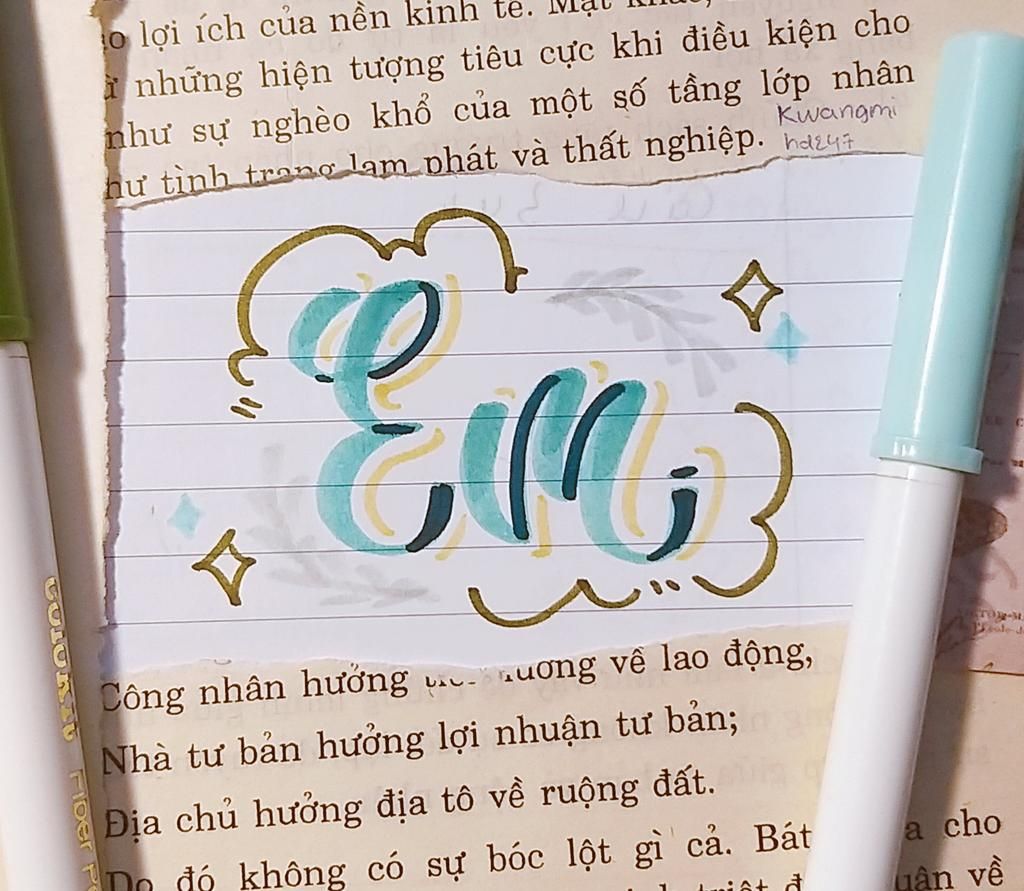 lợi ích của nền kinh tế. Mặt khác,
những hiện tượng tiêu cực khi điều kiện cho
như sự nghèo khổ của một số tầng lớp nhân
hư tình trạng lạm phát và thất nghiệp.
Kwangmi
hd247
EMi
Công nhân hưởng lương về lao động,
Nhà tư bản hưởng lợi nhuận tư bản;
Địa chủ hưởng địa tô về ruộng đất.
Do đó không có sự bóc lột gì cả. Bát a cho
uận về
COLOKIT
Fiber